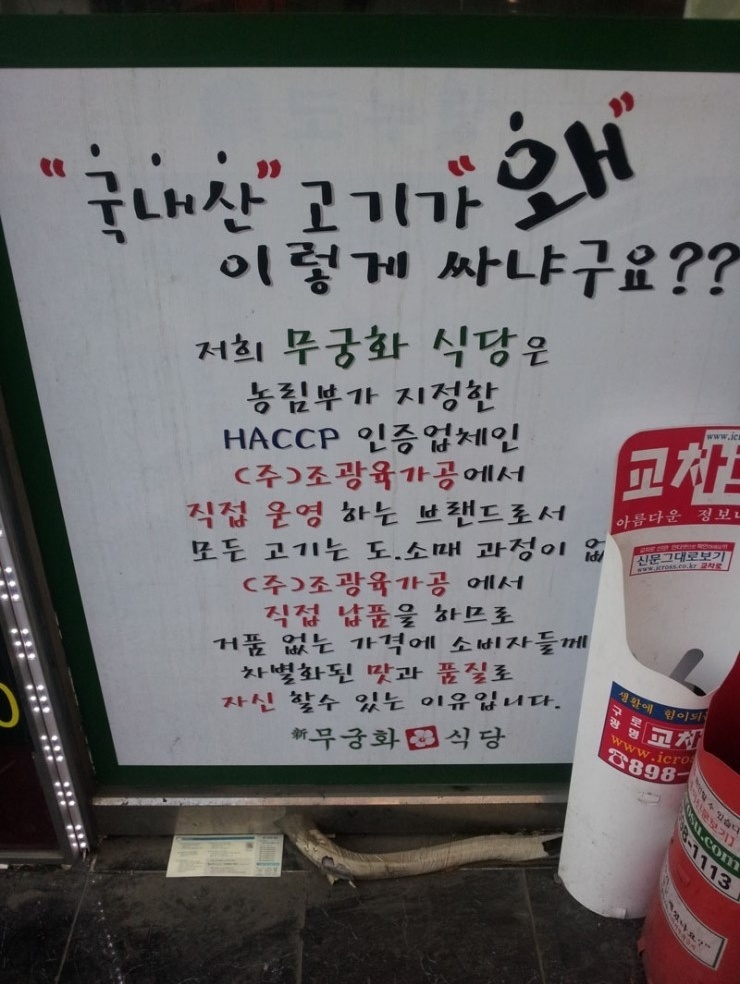 "국내산" 고기가 "왜"
이렇게 싸냐구요??
저희 무궁화 식당은
농림부가 지정한
HACCP 인증업체인
(주)조광육가공에서
직접 운영 하는 브랜드로서
모든 고기는 도.소매 과정이
(주)조광육가공 에서
직접 납품을 하므로
거품 없는 가격에 소비자들께
차별화된 맛과 품질로
자신 할수 있는 이유입니다.
新무궁화 식당
교차
아름다운 정보
신문그대로보기
www.icross.co.kr 교차로
생활에 힘이되
구로
광명
교차
www.icros
☎898-
8-1113